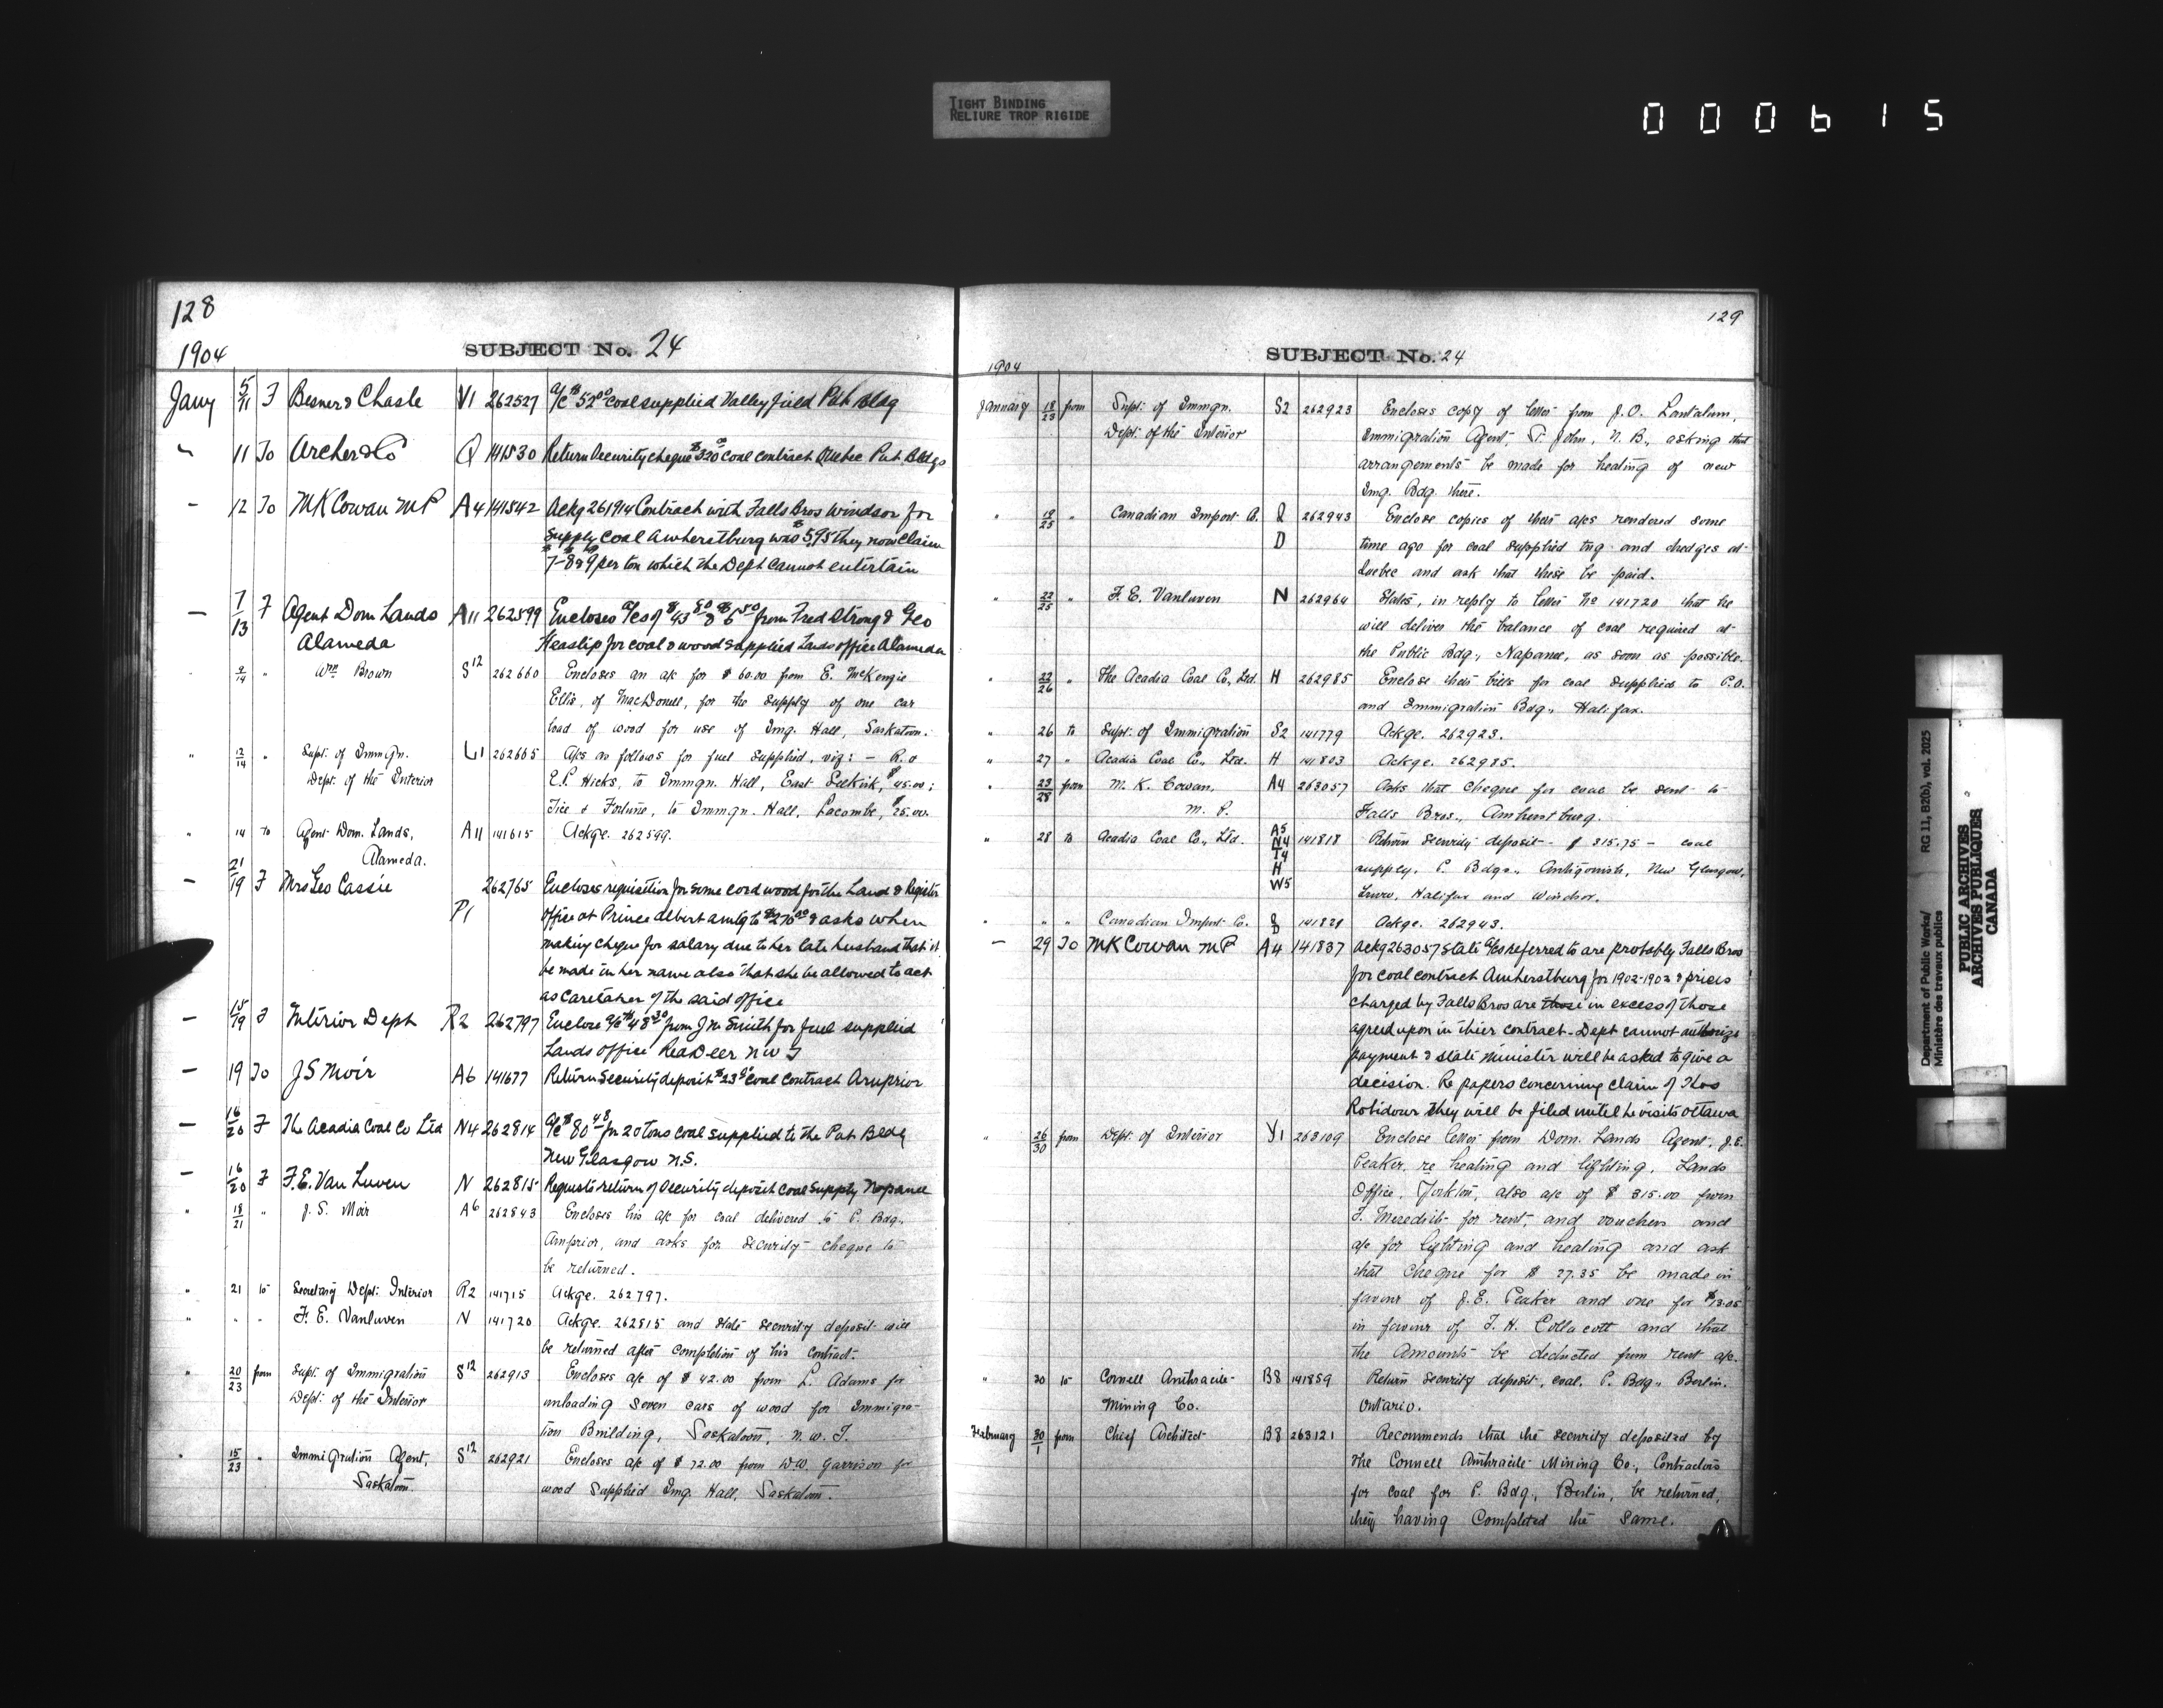 TIGHT BINDING
RELIURE TROP RIGIDE
000615
128
1904
SUBJECT No. 24
Jany 5/11 F Besner & Chasle V1 262527 a/c $52.00 coal supplied Valleyfield Pub Bldg
" 11 To Archer & Co Q 141530 Return Security cheque $320.00 coal contract Quebec Pub. Bldgs
– 12 To MK Cowan MP A4 141542 Ackg 261914 Contract with Falls Bros Windsor for
supply coal Amherstburg was $5.95 they now claim
7–8 & 9 per ton which the Dept cannot entertain
– 7/13 F Agent Dom Lands A11 262599 Encloses a/cs of $43.50 & $6.50 from Fred Strong & Geo
Alameda Heaslip for coal & wood supplied Lands office Alameda
" 9/14 " Wm Brown S12 262660 Encloses an a/c for $60.00 from E. McKenzie
Ellis, of MacDonell, for the supply of one car
load of wood for use of Img. Hall, Saskatoon.
" 12/14 " Supt. of Immgn. L1 262665 A/cs as follows for fuel supplied, viz: – R. &
Dept. of the Interior E.P. Hicks, to Immgn. Hall, East Selkirk, $45.00;
Tice & Fortune, to Immgn. Hall, Lacombe, $25.00.
" 14 to Agent Dom. Lands, A11 141615 Ackge. 262599.
Alameda.
– 21/19 F Mrs Geo Cassie 262765 Encloses requisition for some cord wood for the Land & Register
P1 office at Prince Albert amtg to $276.00 & asks when
making cheque for salary due to her late husband that it
be made in her name also that she be allowed to act
as Caretaker of the said office
– 15/19 F Interior Dept R2 262797 Enclose a/c $48.30 from J M Smith for fuel supplied
Lands Office Red Deer NWT
– 19 To J S Moir A6 141677 Return Security deposit $23 coal contract Arnprior
– 16/20 F The Acadia Coal Co Ltd N4 262814 a/c $80.48 for 20 tons coal supplied to the Pub. Bldg
New Glasgow N.S.
– 16/20 F F.E. Van Luven N 262815 Requests return of Security deposit coal supply Napanee
" 18/21 " J. S. Moir A6 262843 Encloses his a/c for coal delivered to P. Bdg.,
Arnprior, and asks for security cheque to
be returned.
" 21 to Secretary Dept. Interior R2 141715 Ackge. 262797.
" " " F. E. Vanluven N 141720 Ackge. 262815 and state security deposit will
be returned after completion of his contract.
" 20/23 from Supt. of Immigration S12 262913 Encloses a/c of $42.00 from L. Adams for
Dept. of the Interior unloading seven cars of wood for Immigra-
tion Building, Saskatoon, N.W.T.
" 15/23 " Immigration Agent, S12 262921 Encloses a/c of $72.00 from W.W. Garrison for
Saskatoon wood supplied Img. Hall, Saskatoon.
129
1904
SUBJECT No. 24
January 18/23 from Supt. of Immgn. S2 262923 Encloses copy of letter from J.O. Lantalum,
Dept. of the Interior Immigration Agent, St. John, N.B., asking that
arrangements be made for heating of new
Img. Bdg. there.
" 18/25 " Canadian Import. Co. Q 262943 Enclose copies of their a/cs rendered some
D time ago for coal supplied tug and dredges at
Quebec and ask that these be paid.
" 22/25 " F. E. Vanluven N 262964 States, in reply to letter No 141720 that he
will deliver the balance of coal required at
the Public Bdg., Napanee, as soon as possible.
" 22/26 " The Acadia Coal Co., Ltd. H 262985 Enclose their bills for coal supplied to P.O.
and Immigration Bdg., Halifax.
" 26 to Supt. of Immigration S2 141779 Ackge. 262923.
" 27 " Acadia Coal Co., Ltd. H 141803 Ackge. 262985.
" 23/28 from M. K. Cowan, A4 263057 Asks that cheque for coal be sent to
M. P. Falls Bros., Amherstburg.
" 28 to Acadia Coal Co., Ltd. A5 N4 T4 H W5 141818 Return security deposit – $315.75 – coal
supply. P. Bdgs., Antigonish, New Glasgow,
Truro, Halifax and Windsor.
" " " Canadian Import Co. 141828 Ackge. 262943.
– 29 To MK Cowan MP A4 141837 Ackg 263057 state a/cs referred to are probably Falls Bros
for coal contract Amherstburg for 1902-1903 & prices
charged by Falls Bros are those in excess of those
agreed upon in thier contract – Dept cannot authorize
payment & state minister will be asked to give a
decision. Re papers concerning claim of Thos
Robidour they will be filed until he visits Ottawa
" 26/30 from Dept. of Interior Y1 263109 Enclose letter from Dom. Lands Agent, J.E.
Peaker, re heating and lighting, Lands
Office, Yorkton, also a/c of $315.00 from
F. Meredith for rent, and vouchers and
a/c for lighting and heating and ask
that cheque for $27.35 be made in
favour of J.E. Peaker and one for $13.05
in favour of T. H. Collacott and that
the amounts be deducted from rent a/c.
" 30 to Connell Anthracite B8 141859 Return security deposit, coal, P. Bdg., Berlin.
Mining Co. Ontario.
February 30/1 from Chief Architect B8 263121 Recommends that the security deposited by
the Connell Anthracite Mining Co., Contractors
for coal for P. Bdg., Berlin, be returned,
they having completed the same.
Department of Public Works/ RG 11, B2(b), vol. 2025
Ministère des travaux publics
PUBLIC ARCHIVES
ARCHIVES PUBLIQUES
CANADA